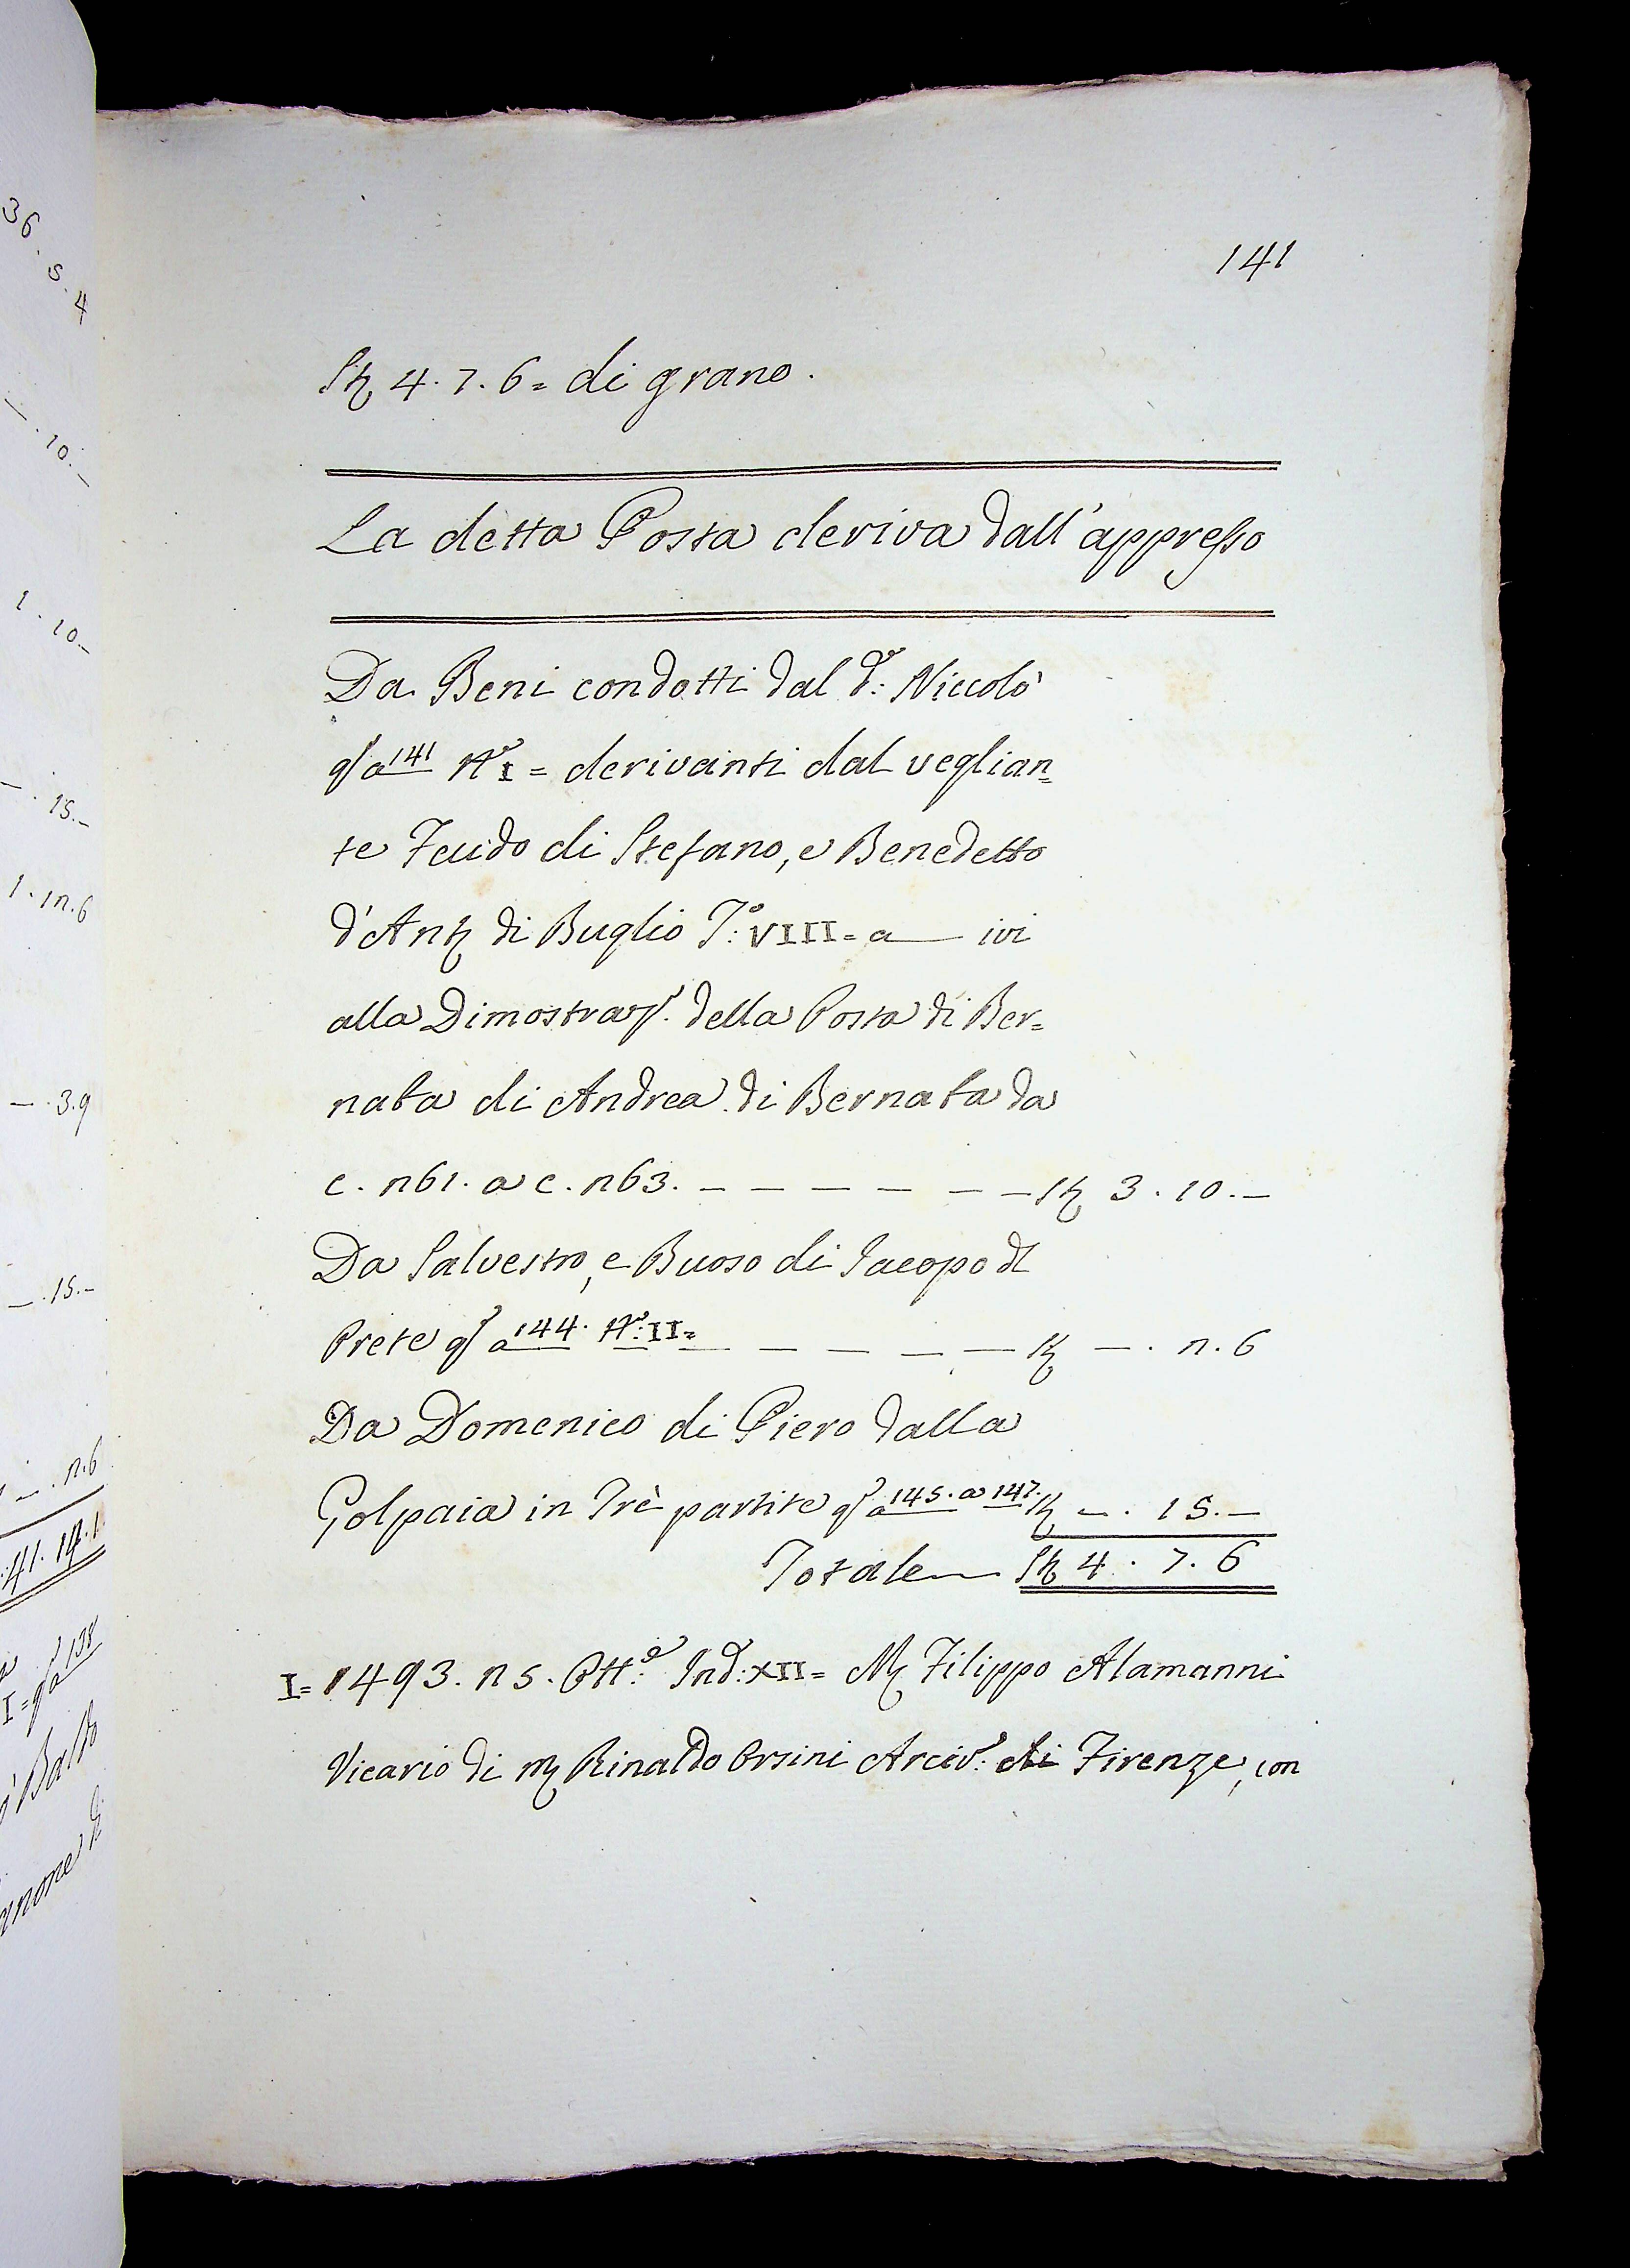 36. 5. 4
—. 10. —
1. 10. —
—. 15. —
1. 12. 6
—. 3. 9
—. 15. —
—. 2. 6
41. 19. 1
141
St 4. 7. 6 = di grano.
La detta Posta deriva dall'appresso
Da Beni condotti dal d.° Niccolò
qt° a 141 N° I = derivanti dal veglian=
te Feudo di Stefano, e Benedetto
d'Ant di Buglio T.° VIII = a — ivi
alla Dimostraz. della Posta di Ber=
naba di Andrea di Bernaba da
c. 261. a c. 263. — — — — — — St 3. 10. —
Da Salvestro, e Buoso di Iacopo d
Prete qt° a 144. N.° II = — — — — — St —. 2. 6
Da Domenico di Piero dalla
Golpaia in Trè partite qt° a 145. a 147. St —. 15. —
Totale — St 4. 7. 6
I = 1493. 25. Ott.e Ind: XII = M Filippo Alamanni
Vicario di M Rinaldo Orsini Arciv.° di Firenze, con